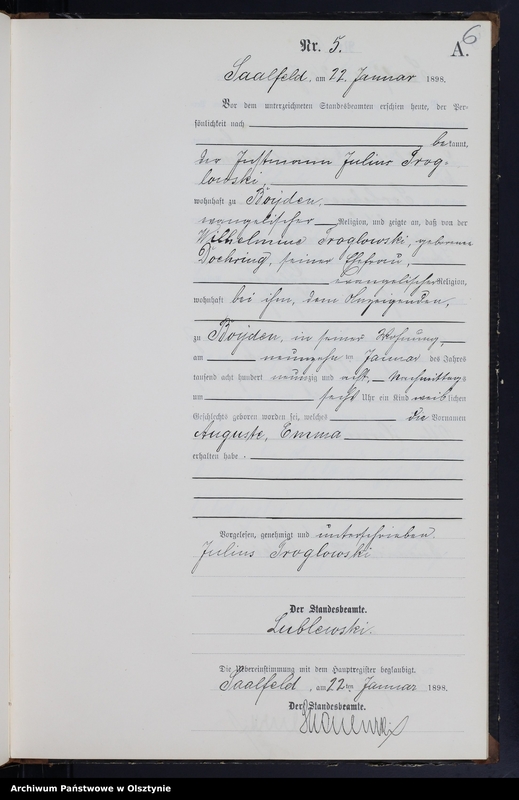 6
A.
Nr. 5.
Saalfeld, am 22. Januar 1898.
Vor dem unterzeichneten Standesbeamten erschien heute, der Per-
sönlichkeit nach
bekannt,
der Instmann Julius Trog-
lowski,
wohnhaft zu Boyden,
evangelischer Religion, und zeigte an, daß von der
Wilhelmine Troglowski, geborene
Doehring, seiner Ehefrau,
evangelischer Religion,
wohnhaft bei ihm, dem Anzeigenden,
zu Boyden, in seiner Wohnung,
am neunzehn ten Januar des Jahres
tausend acht hundert neunzig und acht, Nachmittags
um sechs Uhr ein Kind weiblichen
Geschlechts geboren worden sei, welches die Vornamen
Auguste, Emma
erhalten habe.
Vorgelesen, genehmigt und unterschrieben
Julius Troglowski
Der Standesbeamte.
Lublewski.
Die Übereinstimmung mit dem Hauptregister beglaubigt.
Saalfeld, am 22 ten Januar 1898.
Der Standesbeamte.
Archiwum Państwowe w Olsztynie